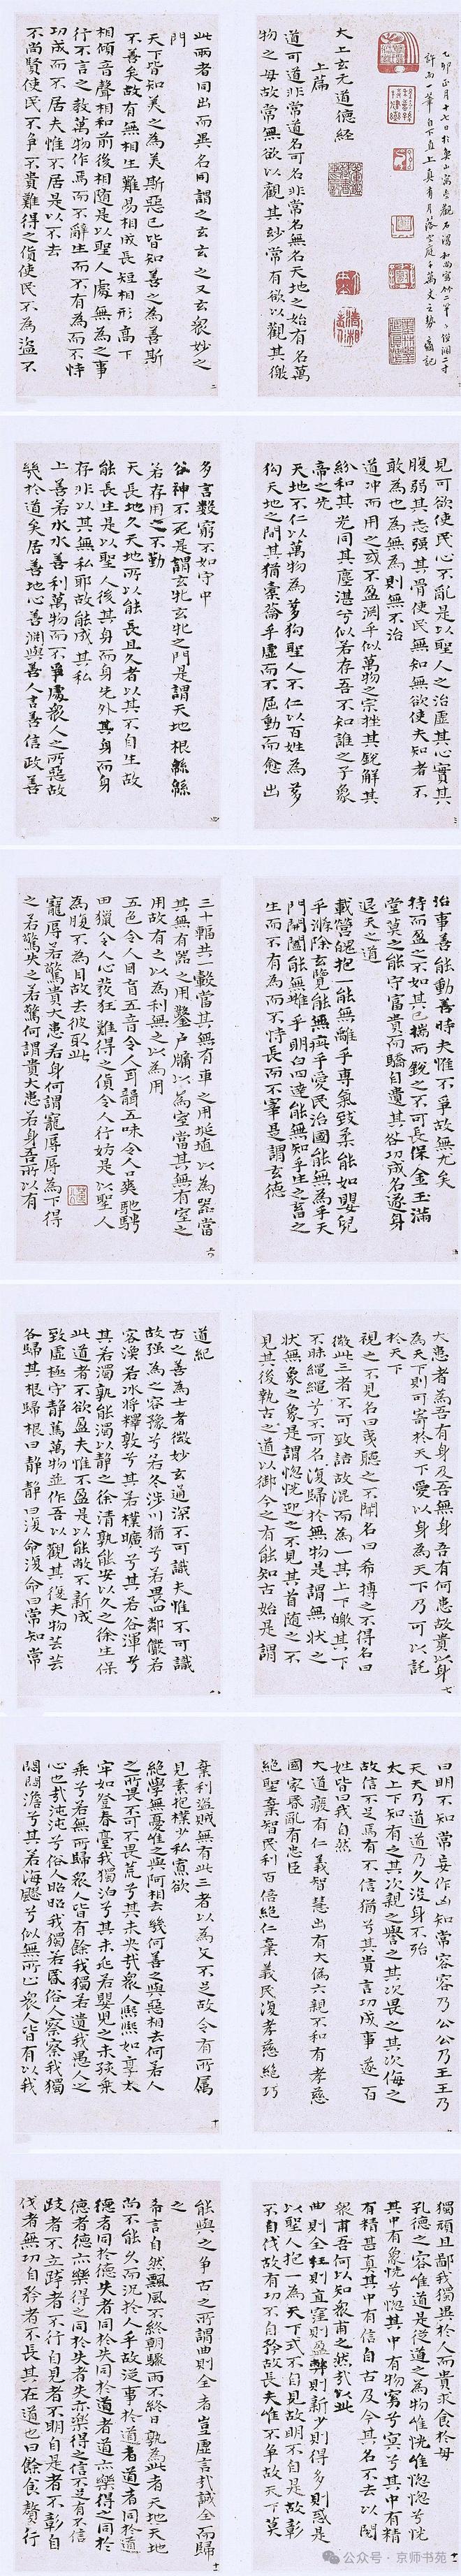 大上玄元道德經
上篇
道可道非常道名可名非常名無名天地之始有名萬
物之母故常無欲以觀其妙常有欲以觀其徼
此兩者同出而異名同謂之玄玄之又玄衆妙之
門
天下皆知美之為美斯惡已皆知善之為善斯
不善矣故有無相生難易相成長短相形高下
相傾音聲相和前後相隨是以聖人處無為之事
行不言之教萬物作焉而不辭生而不有為而不恃
功成而不居夫惟不居是以不去
不尚賢使民不爭不貴難得之貨使民不為盜不
二
見可欲使民心不亂是以聖人之治虛其心實其
腹弱其志强其骨使民無知無欲使夫知者不
敢為也為無為則無不治
道沖而用之或不盈淵乎似萬物之宗挫其銳解其
紛和其光同其塵湛兮似若存吾不知誰之子象
帝之先
天地不仁以萬物為芻狗聖人不仁以百姓為芻
狗天地之間其猶橐籥乎虛而不屈動而愈出
三
多言數窮不如守中
谷神不死是謂玄牝玄牝之門是謂天地根綿綿
若存用之不勤
天長地久天地所以能長且久者以其不自生故
能長生是以聖人後其身而身先外其身而身
存非以其無私耶故能成其私
上善若水水善利萬物而不爭處衆人之所惡故
幾於道矣居善地心善淵與善人言善信政善
四
治事善能動善時夫惟不爭故無尤矣
持而盈之不如其已揣而銳之不可長保金玉滿
堂莫之能守富貴而驕自遺其咎功成名遂身
退天之道
載營魄抱一能無離乎專氣致柔能如嬰兒
乎滌除玄覽能無疵乎愛民治國能無為乎天
門開闔能無雌乎明白四達能無知乎生之畜之
生而不有為而不恃長而不宰是謂玄德
五
三十輻共一轂當其無有車之用埏埴以為器當
其無有器之用鑿户牖以為室當其無有室之
用故有之以為利無之以為用
五色令人目盲五音令人耳聾五味令人口爽馳騁
田獵令人心發狂難得之貨令人行妨是以聖人
為腹不為目故去彼取此
寵辱若驚貴大患若身何謂寵辱辱為下得
之若驚失之若驚何謂貴大患若身吾所以有
六
大患者為吾有身及吾無身吾有何患故貴以身
為天下則可寄於天下愛以身為天下乃可以託
於天下
視之不見名曰夷聽之不聞名曰希搏之不得名曰
微此三者不可致詰故混而為一其上不皦其下
不昧繩繩兮不可名復歸於無物是謂無狀之
狀無象之象是謂惚恍迎之不見其首隨之不
見其後執古之道以御今之有能知古始是謂
七
道紀
古之善為士者微妙玄通深不可識夫惟不可識
故强為之容豫兮若冬涉川猶兮若畏四鄰儼若
客渙若冰將釋敦兮其若樸曠兮其若谷渾兮
其若濁孰能濁以靜之徐清孰能安以久之徐生保
此道者不欲盈夫惟不盈是以能敝不新成
致虛極守靜篤萬物並作吾以觀其復夫物芸芸
各歸其根歸根曰靜靜曰復命復命曰常知常
八
曰明不知常妄作凶知常容容乃公公乃王王乃
天天乃道道乃久沒身不殆
太上下知有之其次親之譽之其次畏之其次侮之
故信不足焉有不信猶兮其貴言功成事遂百
姓皆曰我自然
大道癈有仁義智慧出有大偽六親不和有孝慈
國家昏亂有忠臣
絕聖棄智民利百倍絕仁棄義民復孝慈絕巧
棄利盜賊無有此三者以為文不足故令有所屬
見素抱樸少私寡欲
絕學無憂唯之與阿相去幾何善之與惡相去何若人
之所畏不可不畏荒兮其未央哉衆人熙熙如享太
牢如登春臺我獨泊兮其未兆若嬰兒之未孩乘
乘兮若無所歸衆人皆有餘我獨若遺我愚人之
心也哉沌沌兮俗人昭昭我獨若昏俗人察察我獨
悶悶澹兮其若海飂兮似無所止衆人皆有以我
十
獨頑且鄙我獨異於人而貴求食於母
孔德之容惟道是從道之為物惟恍惟惚惚兮恍
其中有象恍兮惚其中有物窈兮冥兮其中有精
其精甚真其中有信自古及今其名不去以閱
衆甫吾何以知衆甫之然哉以此
曲則全枉則直窪則盈弊則新少則得多則惑是
以聖人抱一為天下式不自見故明不自是故彰
不自伐故有功不自矜故長夫惟不爭故天下莫
能與之爭古之所謂曲則全者豈虛言哉誠全而歸
之
希言自然飄風不終朝驟雨不終日孰為此者天地天地
尚不能久而況於人乎故從事於道者道者同於道
德者同於德失者同於失同於道者道亦樂得之同於
德者德亦樂得之同於失者失亦樂得之信不足有不信
跂者不立跨者不行自見者不明自是者不彰自
伐者無功自矜者不長其在道也曰餘食贅行
公众号·京师书苑